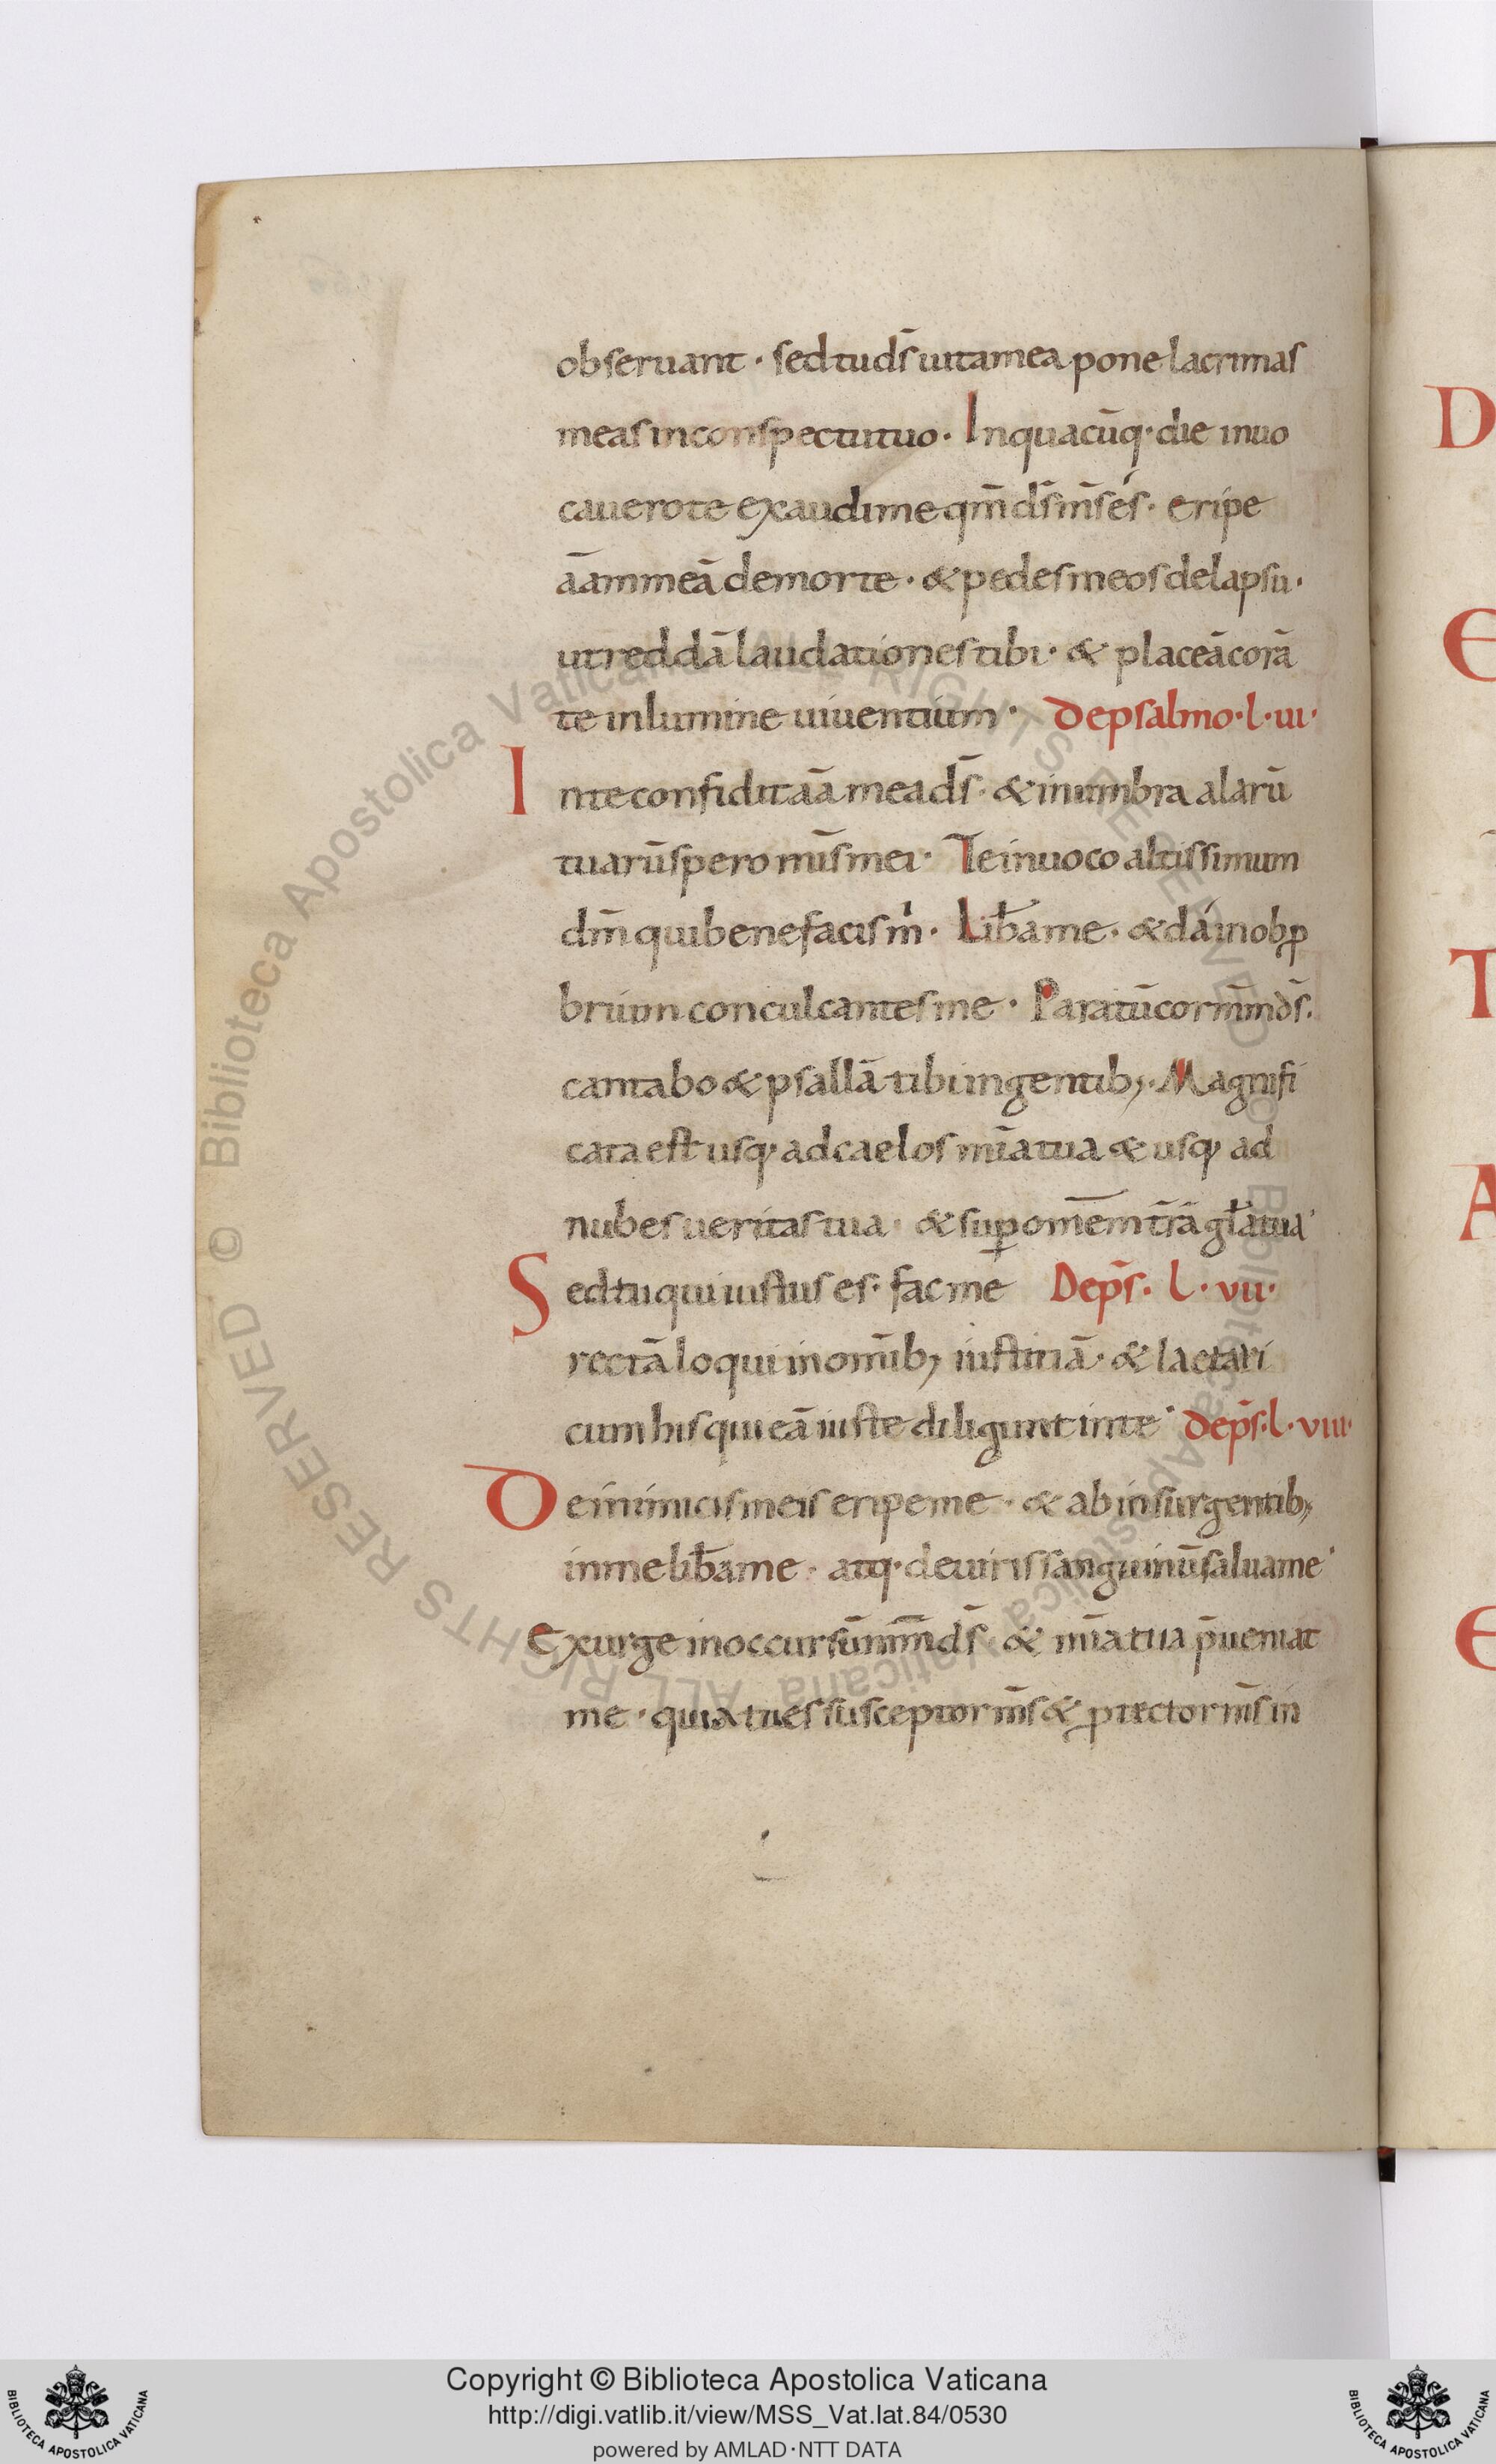 obseruant · sed tu ds̄ uita mea pone lacrimas
meas in conspectu tuo · In quacūq· die inuo
cauero te exaudi me qm̄ ds̄ m̄s és · eripe
āam meā de morte · & pedes meos de lapsu ·
ut reddā laudationes tibi · & placeā corā
te in lumine uiuentium · De psalmo · l · ui ·
In te confidit āa mea ds̄ · & in umbra alarū
tuarū spero mīs mei · Te inuoco altissimum
dm̄ qui benefacis m · Liƀa me · & da in obp
brium conculcantes me · Paratū cor mm̄ ds̄ ·
cantabo & psallā tibi in gentib; · Magnifi
cata est usq· ad caelos mīa tua & usq; ad
nubes ueritas tua · & sup om̄em tr̄ā gl̄a tua ·
Sed tu qui iustus es · fac me De ps̄ · l · vii ·
rectā loqui in om̄ib; iustitiā · & laetari
cum his qui eā iuste diligunt in te · De ps̄ · l · viii ·
De inimicis meis eripe me · & ab insurgentib;
in me liƀa me · atq· de uiris sanguinū salua me ·
Exurge in occursū mm̄ ds̄ · & mīa tua p̄ueniat
me · quia tu es susceptor m̄s & ptector m̄s in
D
E
T
A
E
© Biblioteca Apostolica Vaticana ALL RIGHTS RESERVED © Biblioteca Apostolica Vaticana ALL RIGHTS RESERVED
BIBLIOTECA APOSTOLICA VATICANA
Copyright © Biblioteca Apostolica Vaticana
http://digi.vatlib.it/view/MSS_Vat.lat.84/0530
powered by AMLAD·NTT DATA
BIBLIOTECA APOSTOLICA VATICANA